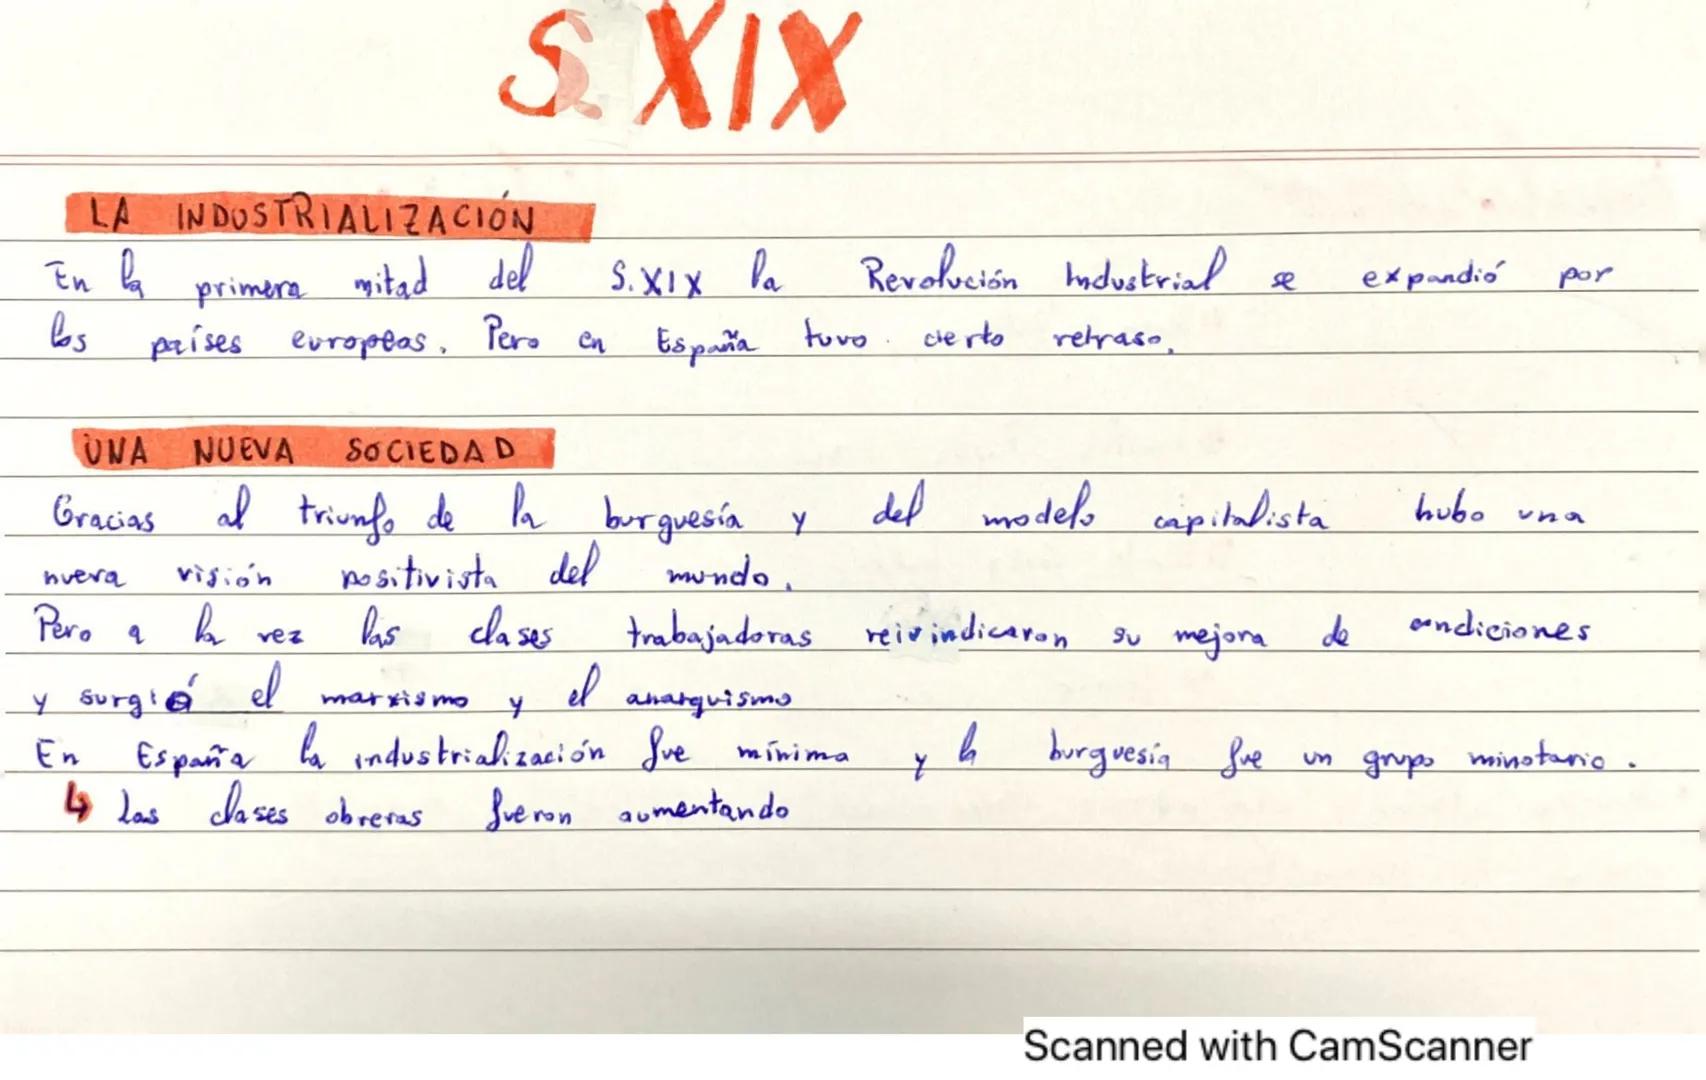 S. XIX
LA INDUSTRIALIZACIÓN
En la primera mitad del S. XIX la Revolución Industrial se expandió por
los países europeos. Pero en España tuvo cierto retraso.
UNA NUEVA SOCIEDAD
Gracias al triunfo de la burguesía y del modelo capitalista hubo una
nueva visión positivista del mundo.
Pero a la vez las clases trabajadoras reivindicaron su mejora de condiciones
y surgió el marxismo y el anarquismo
En España la industrialización fue mínima y la burguesía fue un grupo minotario.
↳ las clases obreras fueron aumentando
Scanned with CamScanner